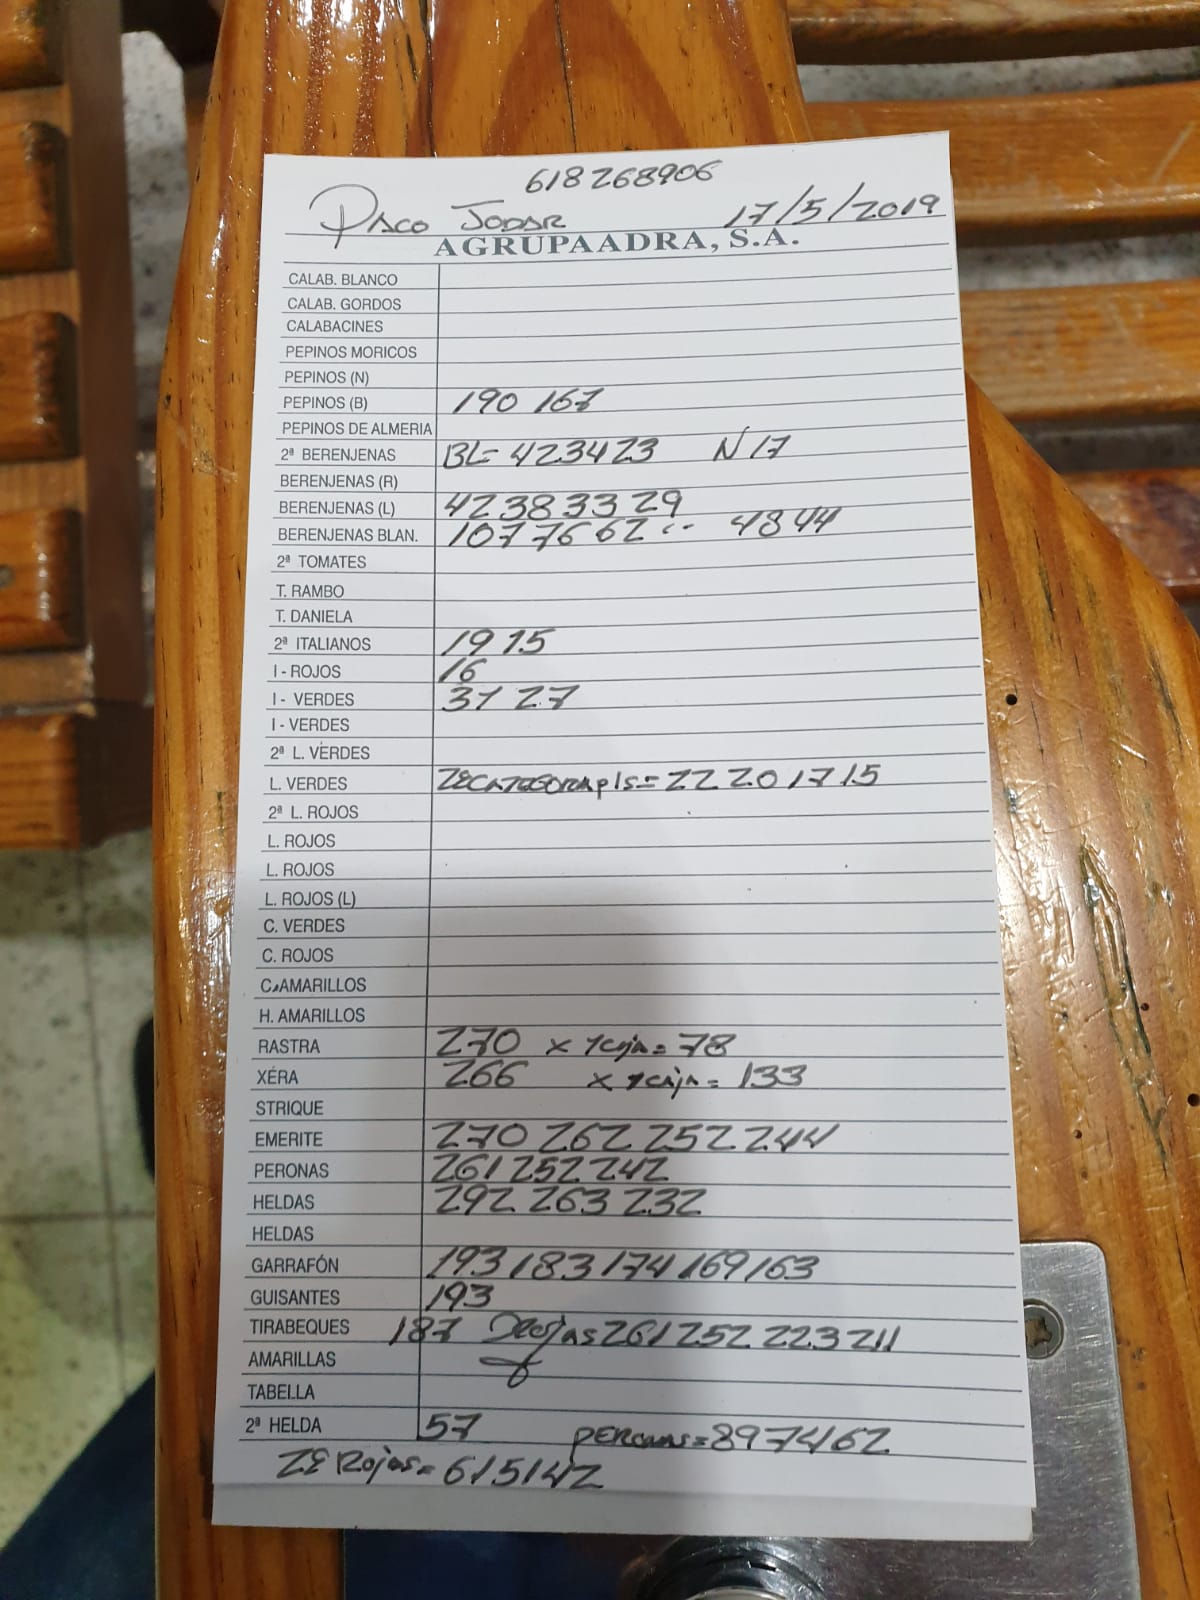 618268906
PACO JODAR 17/5/2019
AGRUPAADRA, S.A.
CALAB. BLANCO
CALAB. GORDOS
CALABACINES
PEPINOS MORICOS
PEPINOS (N)
PEPINOS (B) 190 167
PEPINOS DE ALMERIA
2ª BERENJENAS BL= 42 34 23 N 17
BERENJENAS (R)
BERENJENAS (L) 42 38 33 29
BERENJENAS BLAN. 107 76 62 48 44
2ª TOMATES
T. RAMBO
T. DANIELA
2ª ITALIANOS 19 15
I - ROJOS 16
I - VERDES 31 27
I - VERDES
2ª L. VERDES
L. VERDES = 22 20 17 15
2ª L. ROJOS
L. ROJOS
L. ROJOS
L. ROJOS (L)
C. VERDES
C. ROJOS
C. AMARILLOS
H. AMARILLOS
RASTRA 270 x 1 caja = 78
XÉRA 266 x 1 caja = 133
STRIQUE
EMERITE 270 262 252 244
PERONAS 261 252 242
HELDAS 292 263 232
HELDAS
GARRAFÓN 193 183 174 169 163
GUISANTES 193
TIRABEQUES 187 261 252 223 211
AMARILLAS
TABELLA
2ª HELDA 57 = 89 74 62
Rojas = 61 51 42